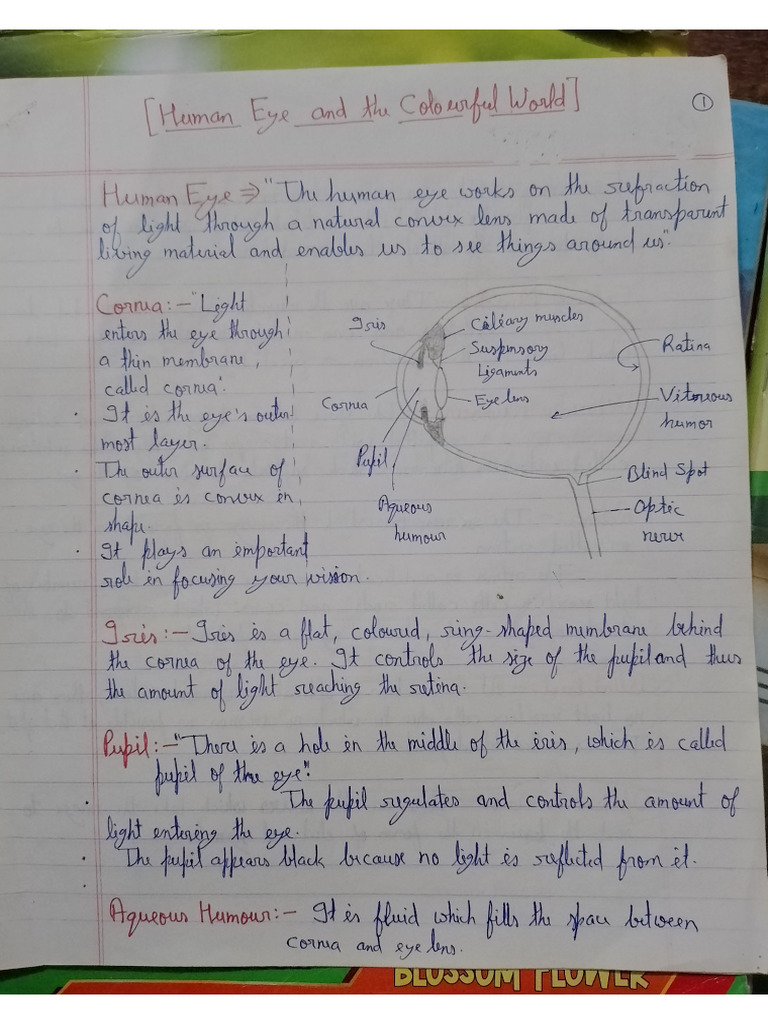 [Human Eye and the Colourful World]
1
Human Eye ⇒ "The human eye works on the refraction
of light through a natural convex lens made of transparent
living material and enables us to see things around us".
Cornea:- "Light
enters the eye through
a thin membrane,
called cornea".
· It is the eye's outer
most layer.
· The outer surface of
cornea is convex in
shape.
· It plays an important
role in focusing your vision.
Iris
Ciliary muscles
Suspensory
Ligaments
Eye lens
Cornea
Pupil
Aqueous
humour
Ratina
Vitreous
humor
Blind Spot
Optic
nerve
Iris:- Iris is a flat, coloured, ring-shaped membrane behind
the cornea of the eye. It controls the size of the pupil and thus
the amount of light reaching the retina.
Pupil:- "There is a hole in the middle of the iris, which is called
pupil of the eye".
· The pupil regulates and controls the amount of
light entering the eye.
· The pupil appears black because no light is reflected from it.
Aqueous Humour:- It is fluid which fills the space between
cornea and eye lens.
BLOSSOM FLOWER